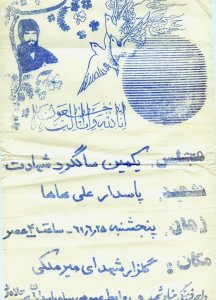 انا لله وانا الیه راجعون
مجلس: یکمین سالگرد شهادت
شهید: پاسدار علی
زمان: پنجشنبه ۶۱،۶،۲۵ - ساعت ۴ عصر
مکان: گلزار شهدای میرملکی